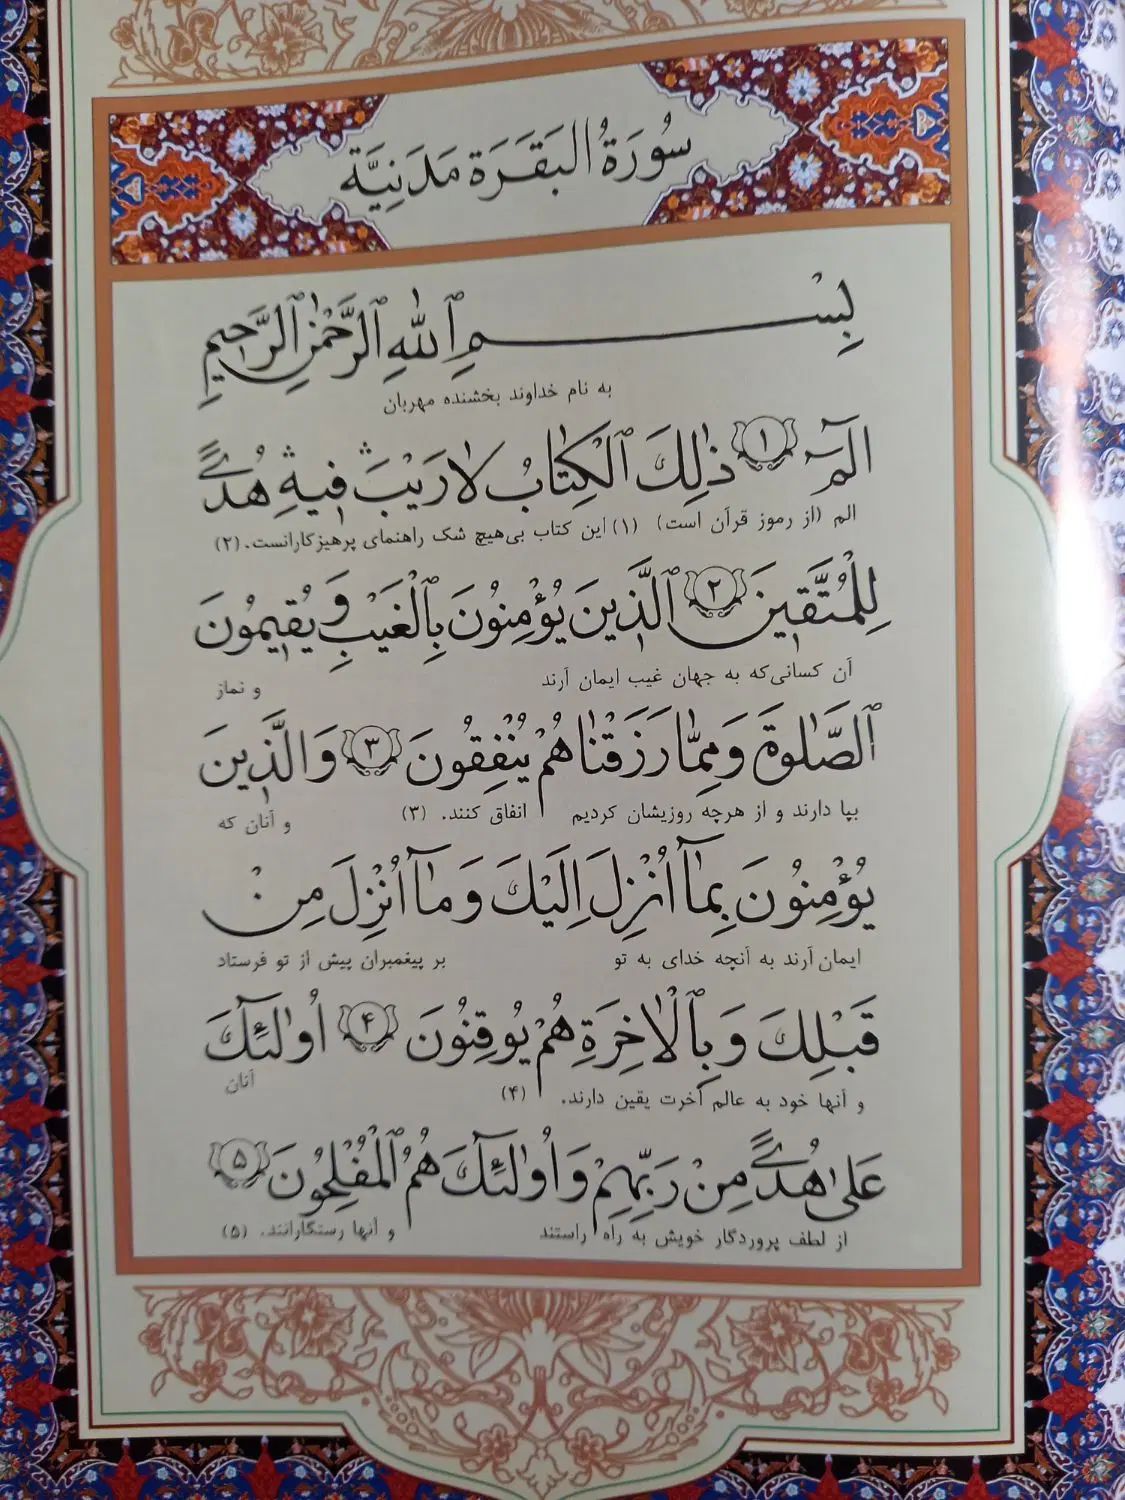 سُورَةُ البَقَرَة مَدَنِيَّة
بِسْمِ ٱللّٰهِ ٱلرَّحْمٰنِ ٱلرَّحِيمِ
به نام خداوند بخشنده مهربان
الٓمٓ ﴿۱﴾ ذٰلِكَ ٱلْكِتٰابُ لاٰ رَيْبَ فِيهِ هُدىً
الم (از رموز قرآن است) (۱) این کتاب بی‌هیچ شک راهنمای پرهیزکارانست. (۲)
لِلْمُتَّقِينَ ﴿۲﴾ ٱلَّذِينَ يُؤْمِنُونَ بِالْغَيْبِ وَ يُقِيمُونَ
آن کسانی‌که به جهان غیب ایمان آرند و نماز
ٱلصَّلاٰةَ وَ مِمّٰا رَزَقْنٰاهُمْ يُنْفِقُونَ ﴿۳﴾ وَ الَّذِينَ
بپا دارند و از هرچه روزیشان کردیم انفاق کنند. (۳) و آنان که
يُؤْمِنُونَ بِمٰا أُنْزِلَ إِلَيْكَ وَ مٰا أُنْزِلَ مِنْ
ایمان آرند به آنچه خدای به تو بر پیغمبران پیش از تو فرستاد
قَبْلِكَ وَ بِالْاٰخِرَةِ هُمْ يُوقِنُونَ ﴿۴﴾ أُولٰئِكَ
و آنها خود به عالم آخرت یقین دارند. (۴) آنان
عَلىٰ هُدىً مِنْ رَبِّهِمْ وَ أُولٰئِكَ هُمُ ٱلْمُفْلِحُونَ ﴿۵﴾
از لطف پروردگار خویش به راه راستند و آنها رستگارانند. (۵)